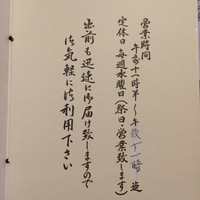 営業時間
午前十一時半～午後八時迄
定休日毎週水曜日(祭日・営業致します)
出前も迅速に御届け致しますので
御気軽に御利用下さい